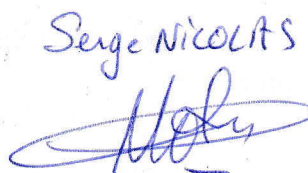 Serge NICOLAS